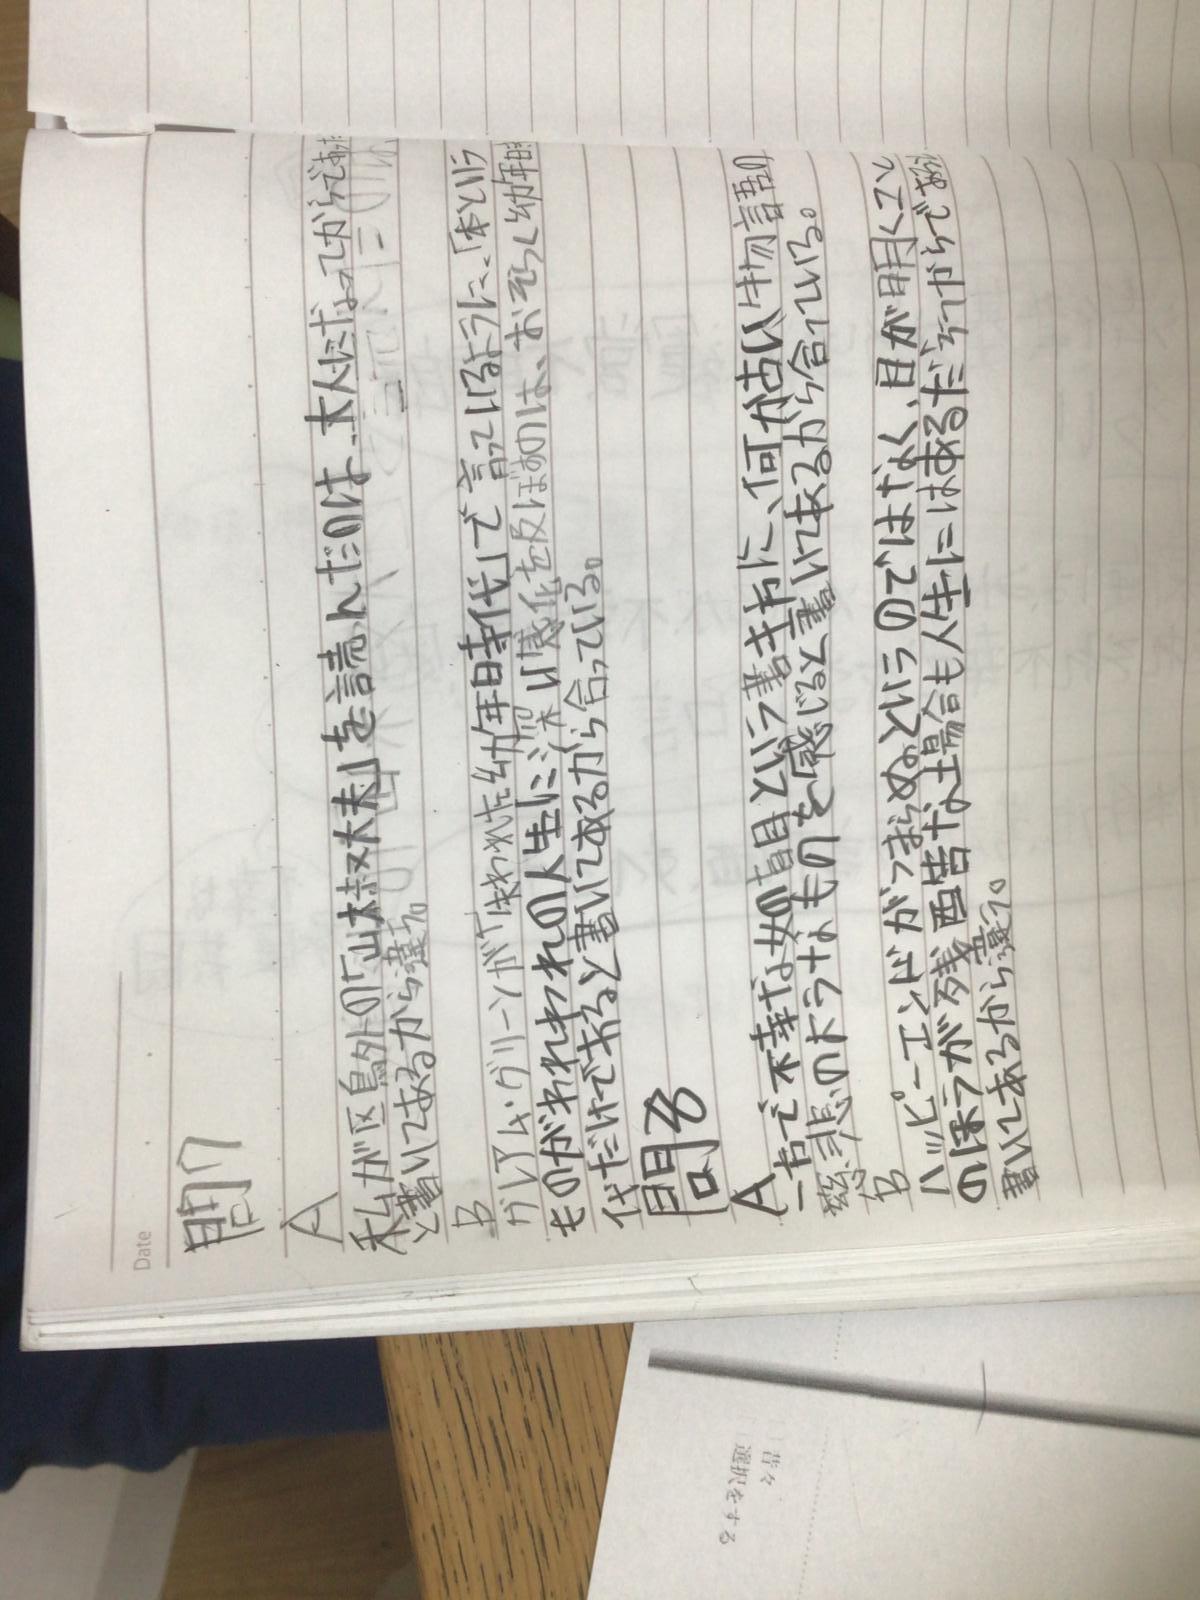 Date
問7
A
私が区鳥外の「山椒大夫」を読んだのは、大人になってからであ
と書いてあるから違う。
B
グレアム・グリーンが「失われた幼年時代」で言っているように、「本という
ものがわれわれの人生に深い感化を及ぼすのは、おそらく幼年時
代だけであると書いてあるから合っている。
問8
A
一方で本来な如の見ていに書き方に、何か白い生き物
慈悲のようなものを感じると書いてあるから合っている。
B
ハッピーエンドがつまらぬというのではなく、目が甘くて、
のほうが残酷な場合も人生にはあるだろうからで
書いてあるから違う。
昔々
選択をする